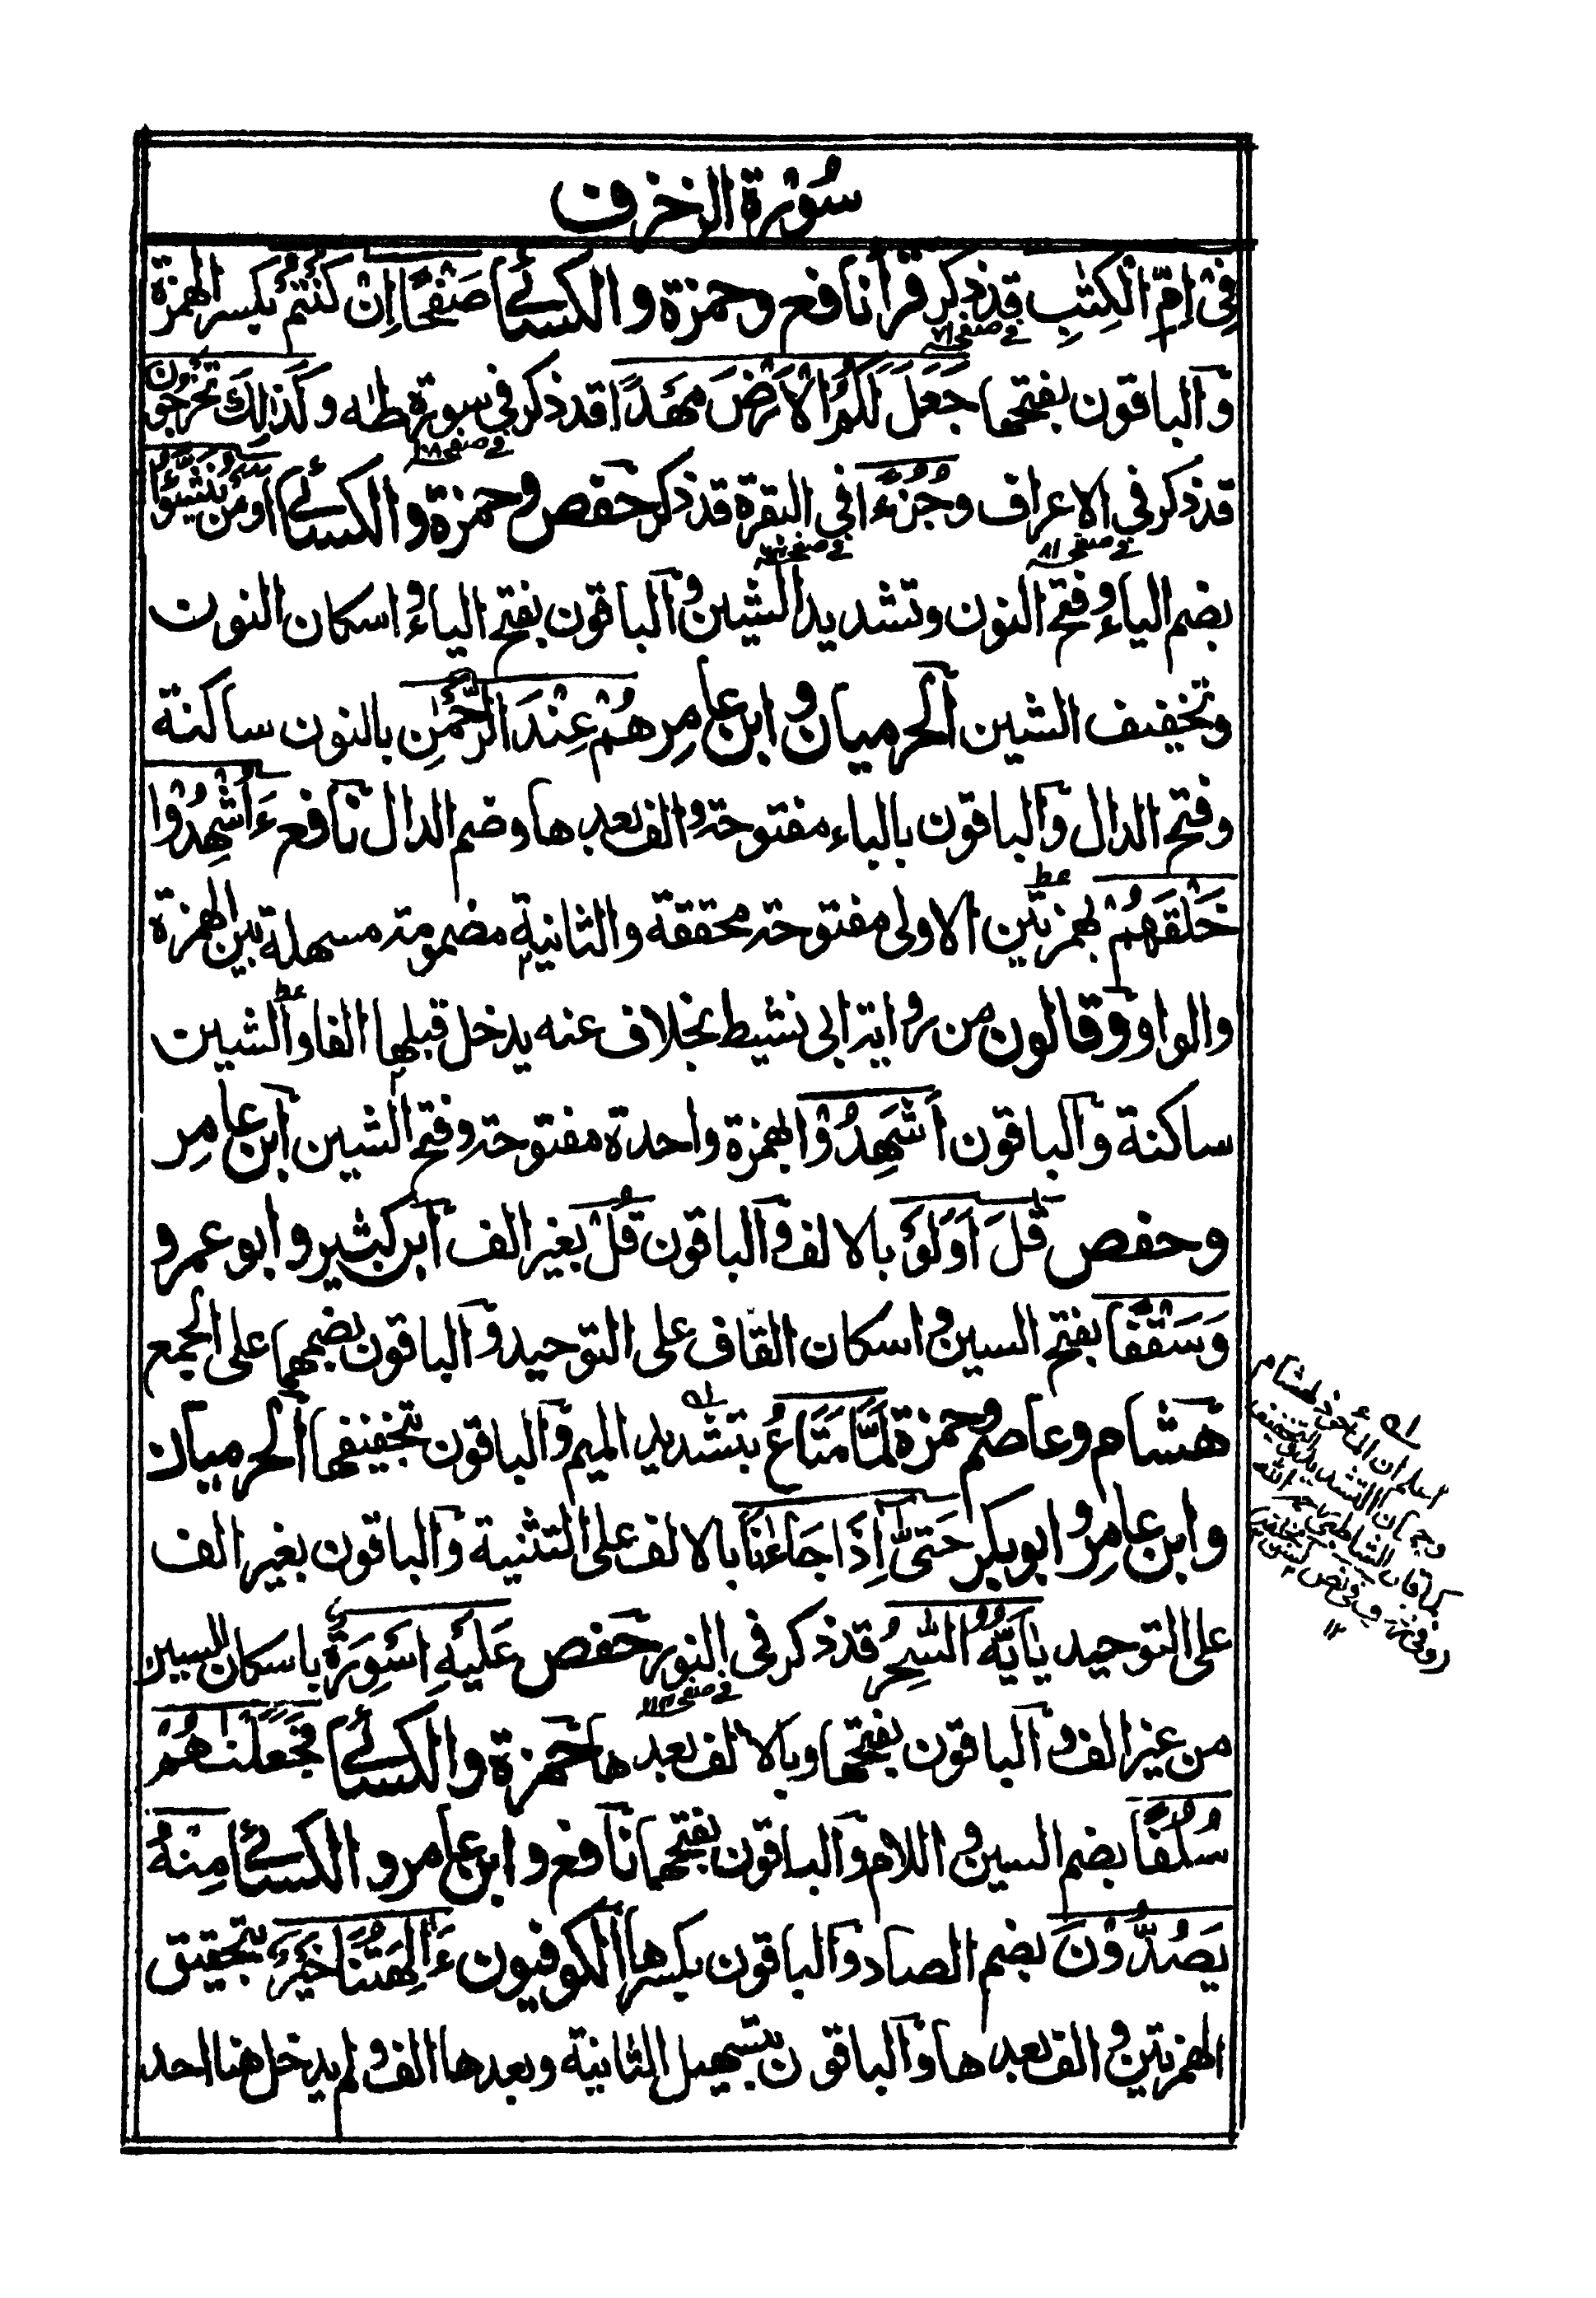 سُوْرة الزخرف
فِىْ اِمِّ الْكِتٰبِ قد ذكر قرأ نافع وحمزة والكسائے صَفْحًا اِنْ كُنْتُمْ بكسر الهمزة
فى صفحه ٧١
والباقون بفتحها جَعَلَ لَكُمُ الْاَرْضَ مَهْدًا قد ذكر فى سورة طٰه وكَذٰلِكَ تُخْرَجُوْنَ
فى صفحه ١٠٨
قد ذكر فى الاعراف وجُزْءًا فى البقرة قد ذكر حفص وحمزة والكسائے اَوَمَنْ يُنَشَّؤُا
فى صفحه ٨١ فى صفحه
بضم الياء وفتح النون وتشديد الشين والباقون بفتح الياء واسكان النون
وتخفيف الشين الحرميان وابن عامر هُمْ عِنْدَ الرَّحْمٰنِ بالنون ساكنة
وفتح الدال والباقون بالباء مفتوحة والف بعدها وضم الدال نافع ءَاُشْهِدُوْا
خَلْقَهُمْ بهمزتين الاولى مفتوحة محققة والثانية مضمومة مسهلة بين الهمزة
والواو وقالون من رواية ابى نشيط بخلاف عنه يدخل قبلها الفا والشين
ساكنة والباقون اَشَهِدُوْا بهمزة واحدة مفتوحة وفتح الشين ابن عامر
وحفص قٰلَ اَوَلَوْ بالالف والباقون قُلْ بغير الف ابن كثير وابو عمرو
وَسَقْفًا بفتح السين واسكان القاف على التوحيد والباقون بضمهما على الجمع
هشام وعاصم وحمزة لَمَّا مَتَاعُ بتشديد الميم والباقون بتخفيفها الحرميان
وابن عامر وابوبكر حَتّٰى اِذَا جَاءٰنَا بالالف على التثنية والباقون بغير الف
على التوحيد يٰاَيُّهَ السّٰحِرُ قد ذكر فى النور حفص عَلَيْهِ اَسْوِرَةٌ باسكان السين
فى صفحه
من غير الف والباقون بفتحها وبالالف بعدها حمزة والكسائے فَجَعَلْنٰهُمْ
سُلُفًا بضم السين واللام والباقون بفتحهما نافع وابن عامر والكسائے مِنْهُ
يَصُدُّوْنَ بضم الصاد والباقون بكسرها الكوفيون ءَاٰلِهَتُنَا خَيْرٌ بتحقيق
الهمزتين والف بعدها والباقون بتسهيل الثانية وبعدها الف ولم يدخل هنا احد
اعلم ان المأخوذ لهشام
وجهان التشديد والتخفيف
كما قال الشاطبى رحمه الله
١٢